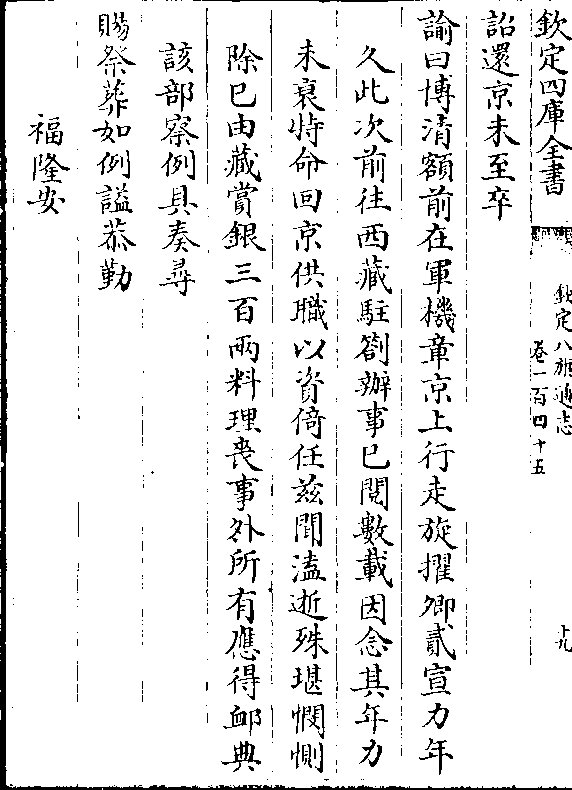 欽定四庫全書
欽定八旗通志
卷一百四十五
十九
詔還京未至卒
諭曰博清額前在軍機章京上行走旋擢卿貳宣力年
久此次前往西藏駐劄辦事已閱數載因念其年力
未衰特命回京供職以資倚任兹聞溘逝殊堪憫惻
除已由藏賞銀三百兩料理喪事外所有應得䘏典
該部察例具奏尋
賜祭葬如例謚恭勤
福隆安